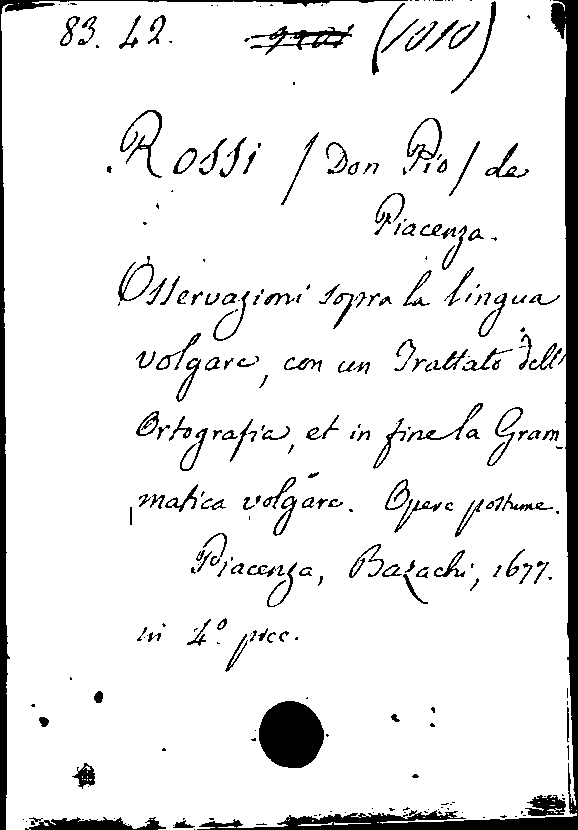 83. 42. (1010)
Rossi / Don Pio / de
Piacenza.
Osservazioni sopra la lingua
volgare, con un Trattato dell'
Ortografia, et in fine la Gram-
matica volgare. Opere postume.
Piacenza, Bazachi, 1677.
in 4º. picc.